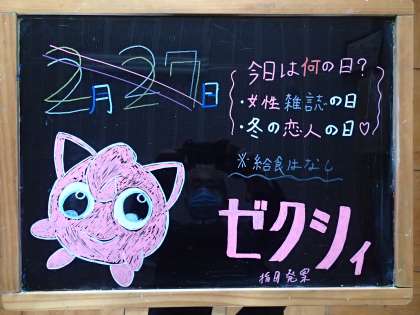 2月27日
今日は何の日？
・女性雑誌の日
・冬の恋人の日♡
※給食はなし
ゼクシィ